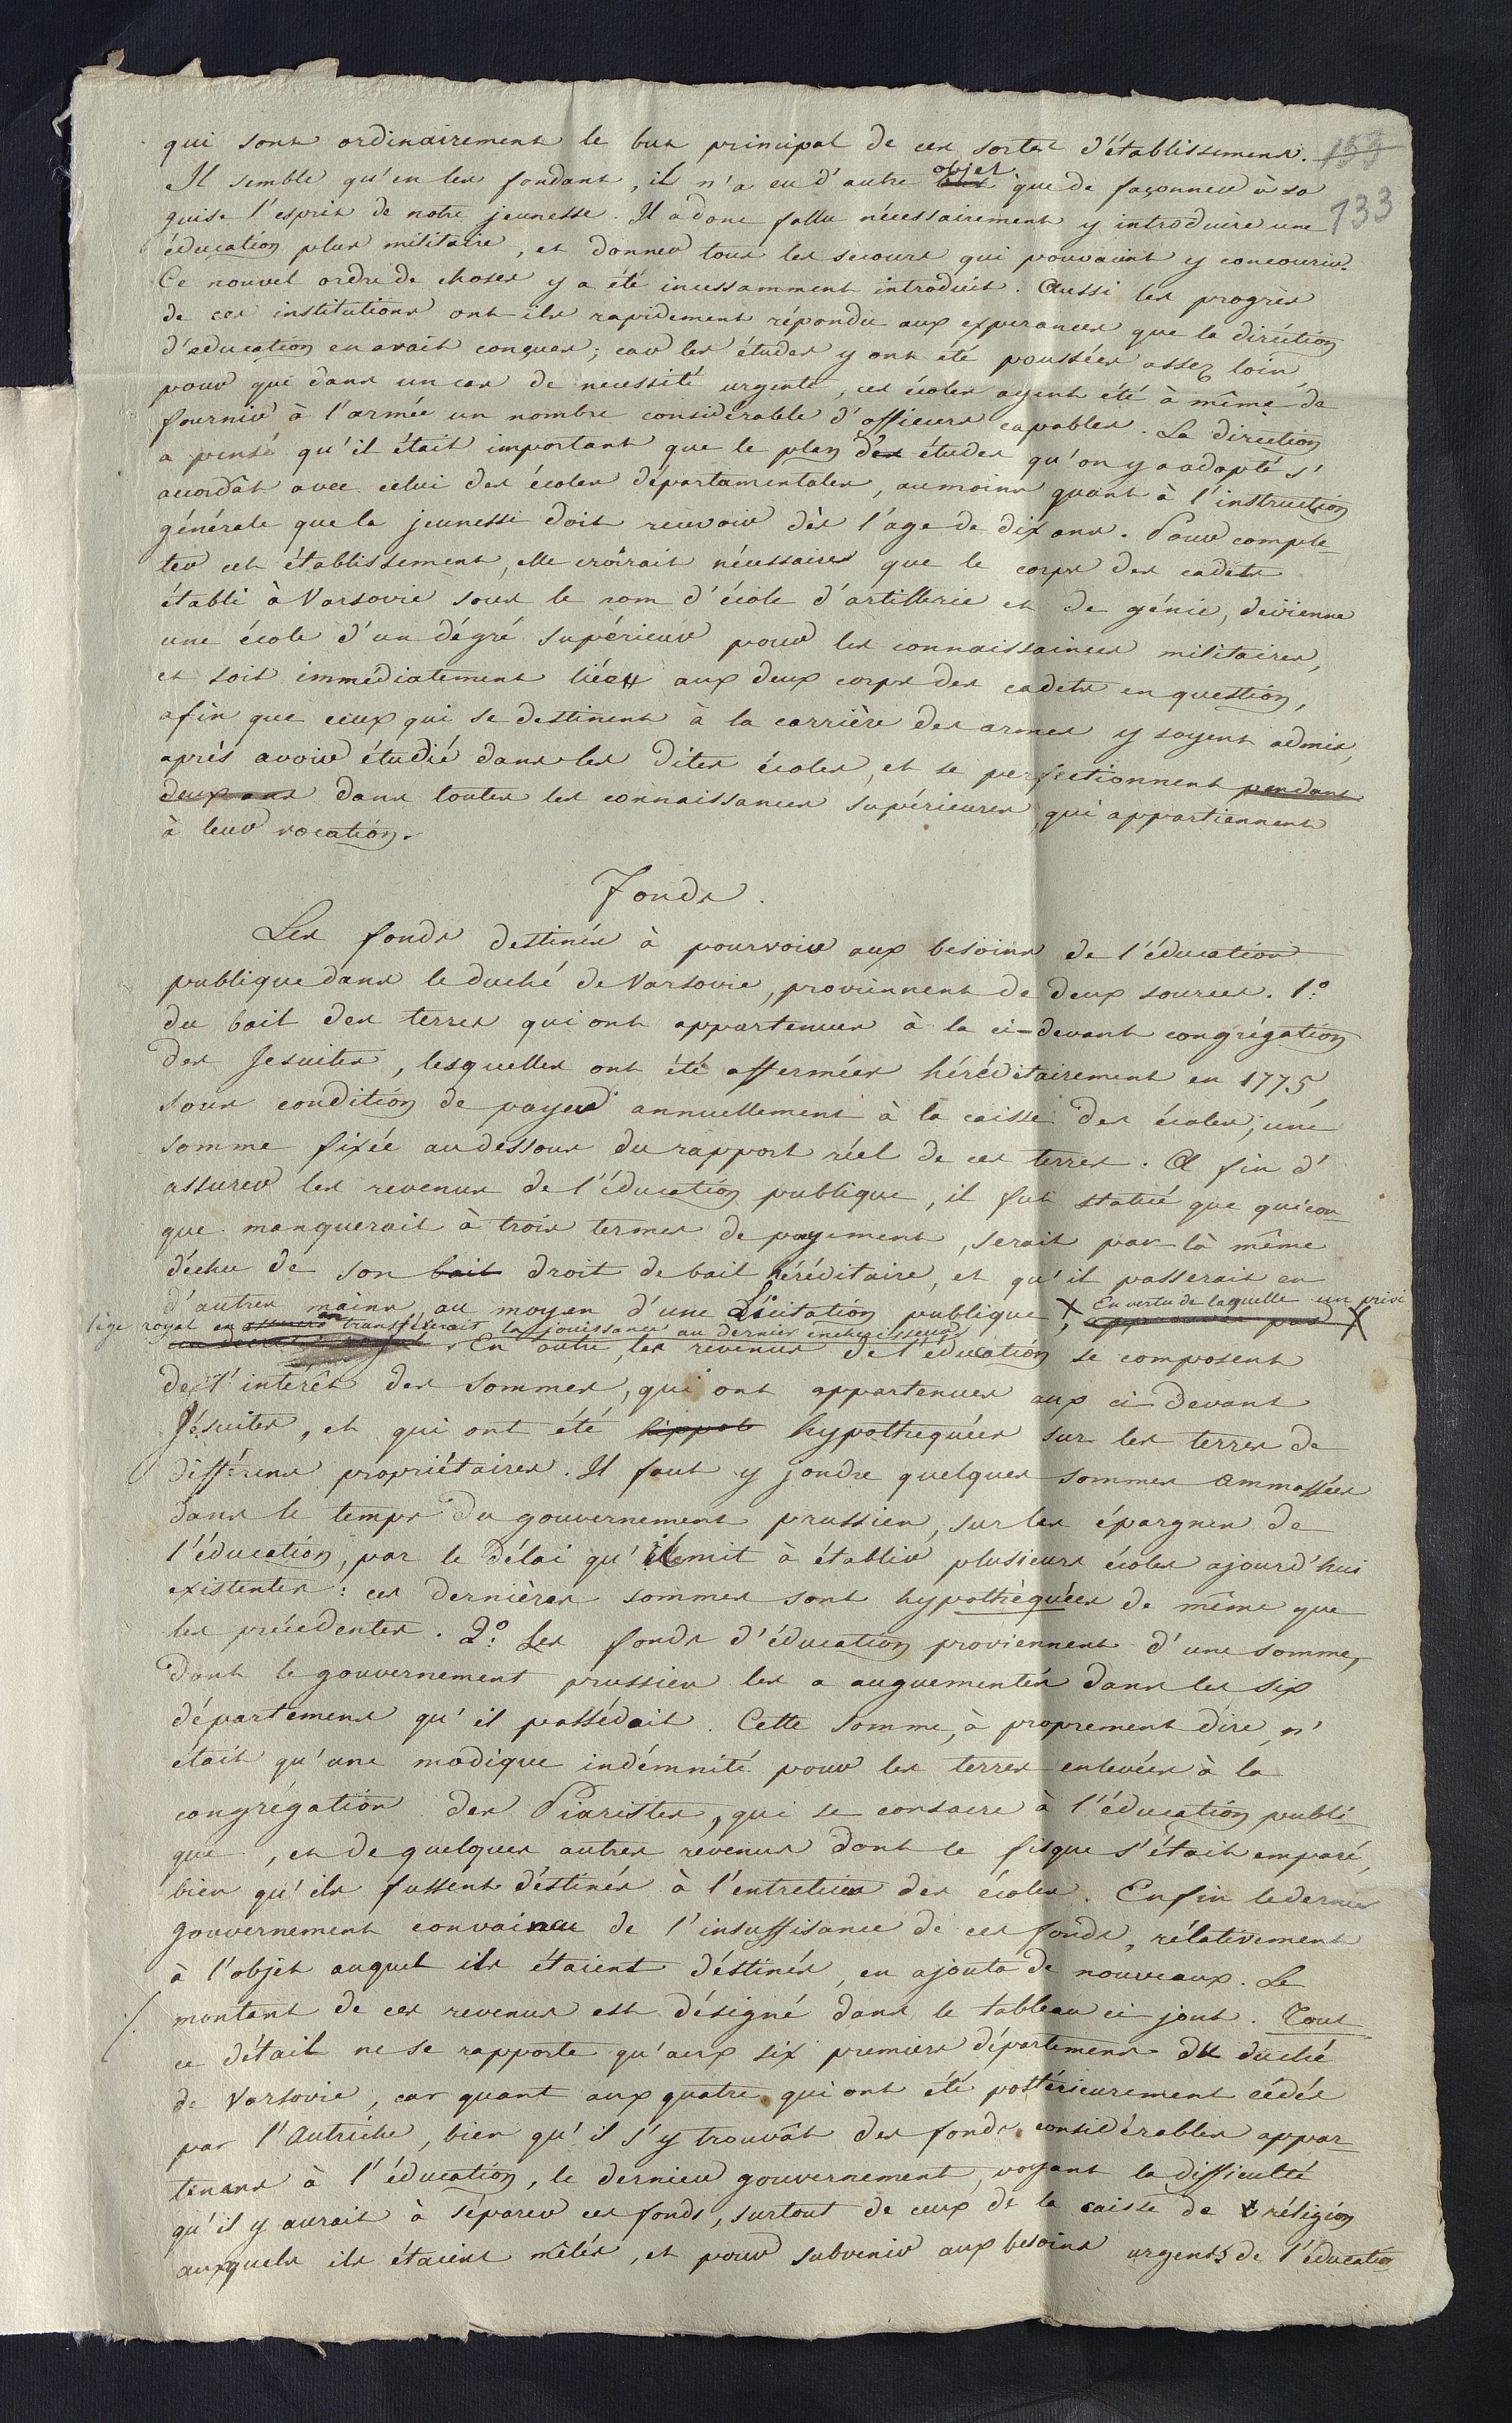 qui sont ordinairement le but principal de ces sortes d'établissemens. 133
Il semble qu'en les fondant, il n'a eu d'autre but objet que de façonner à sa
133
guise l'esprit de notre jeunesse. Il a donc fallu nécessairement y introduire une
éducation plus militaire, et donner tous les secours qui pouvaient y concourir.
Ce nouvel ordre de choses y a été incessamment introduit. Aussi les progrès
de ces institutions ont ils rapidement répondu aux esperances que la diréction
d'education en avait conçues; car les études y ont été poussées assez loin,
pour que dans un cas de necessité urgente, ces écoles ayent été à même de
fournir à l'armée un nombre considérable d'officiers capables. La diréction
a pensé qu'il était important que le plan des études qu'on y a adopté s'
accordât avec celui des écoles départamentales, aumoins quant à l'instruction
générale que la jeunesse doit recevoir dès l'age de dix ans. Pour comple-
ter cet établissement, elle croirait nécessaire que le corps des cadets
établi à Varsovie sous le nom d'école d'artillerie et de génie, devienne
une école d'un dégré supérieur pour les connaissances militaires,
et soit immédiatement liée aux deux corps des cadets en question,
afin que ceux qui se destinent à la carrière des armes y soyent admis,
après avoir étudié dans les dites écoles, et se perfectionnent pendant
deux ans dans toutes les connaissances supérieures, qui appartiennent
à leur vocation.
Fonds.
Les fonds destinés à pourvoir aux besoins de l'éducation
publique dans le duché de Varsovie, proviennent de deux sources. 1.º
du bail des terres qui ont appartenues à la ci-devant congrégation
des Jesuites, lesquelles ont été affermées héréditairement en 1775,
sous condition de payer annuellement à la caisse des écoles, une
somme fixée au dessous du rapport réel de ces terres. A fin d'
assurer les revenus de l'éducation publique, il fut statué que quicon-
que manquerait à trois termes de payement, serait par là même
déchu de son bail droit de bail héréditaire, et qu'il passerait en
d'autres mains, au moyen d'une Licitation publique, X En vertu de laquelle un privi
lège royal en assurera transférerait la jouissance au dernier encherisseur X
En outre, les revenus de l'éducation se composent
de l'intérêt des sommes, qui ont appartenues aux ci-devant
Jésuites, et qui ont été hippot hypothequées sur les terres de
différens propriétaires. Il faut y joindre quelques sommes ammassées
dans le temps du gouvernement prussien, sur les épargnes de
l'éducation, par le délai qu'il mit à établir plusieurs écoles ajourd'hui
existentes: ces dernières sommes sont hypothéquées de même que
les précédentes. 2.º Les fonds d'éducation proviennent d'une somme,
dont le gouvernement prussien les a auguementés dans les six
départemens qu'il possédait. Cette somme, à proprement dire, n'
était qu'une modique indémnité pour les terres enlevées à la
congrégation des Piaristes, qui se consacre à l'éducation publi-
que, et de quelques autres revenus dont le fisque s'était emparé,
bien qu'ils fussent déstinés à l'entretien des écoles. Enfin le dernier
gouvernement convaincu de l'insuffisance de ces fonds, rélativement
à l'objet auquel ils étaient déstinés, en ajouta de nouveaux. Le
./. montant de ces revenus est désigné dans le tableau ci joint. Tout
ce détail ne se rapporte qu'aux six premiers départemens du duché
de Varsovie, car quant aux quatre qui ont été postérieurement cédés
par l'Autriche, bien qu'il s'y trouvât des fonds considérables appar-
tenans à l'éducation, le dernier gouvernement, voyant la difficulté
qu'il y aurait à séparer ces fonds, surtout de ceux de la caisse de réligion
auxquels ils étaient mêlés, et pour subvenir aux besoins urgents de l'éducation